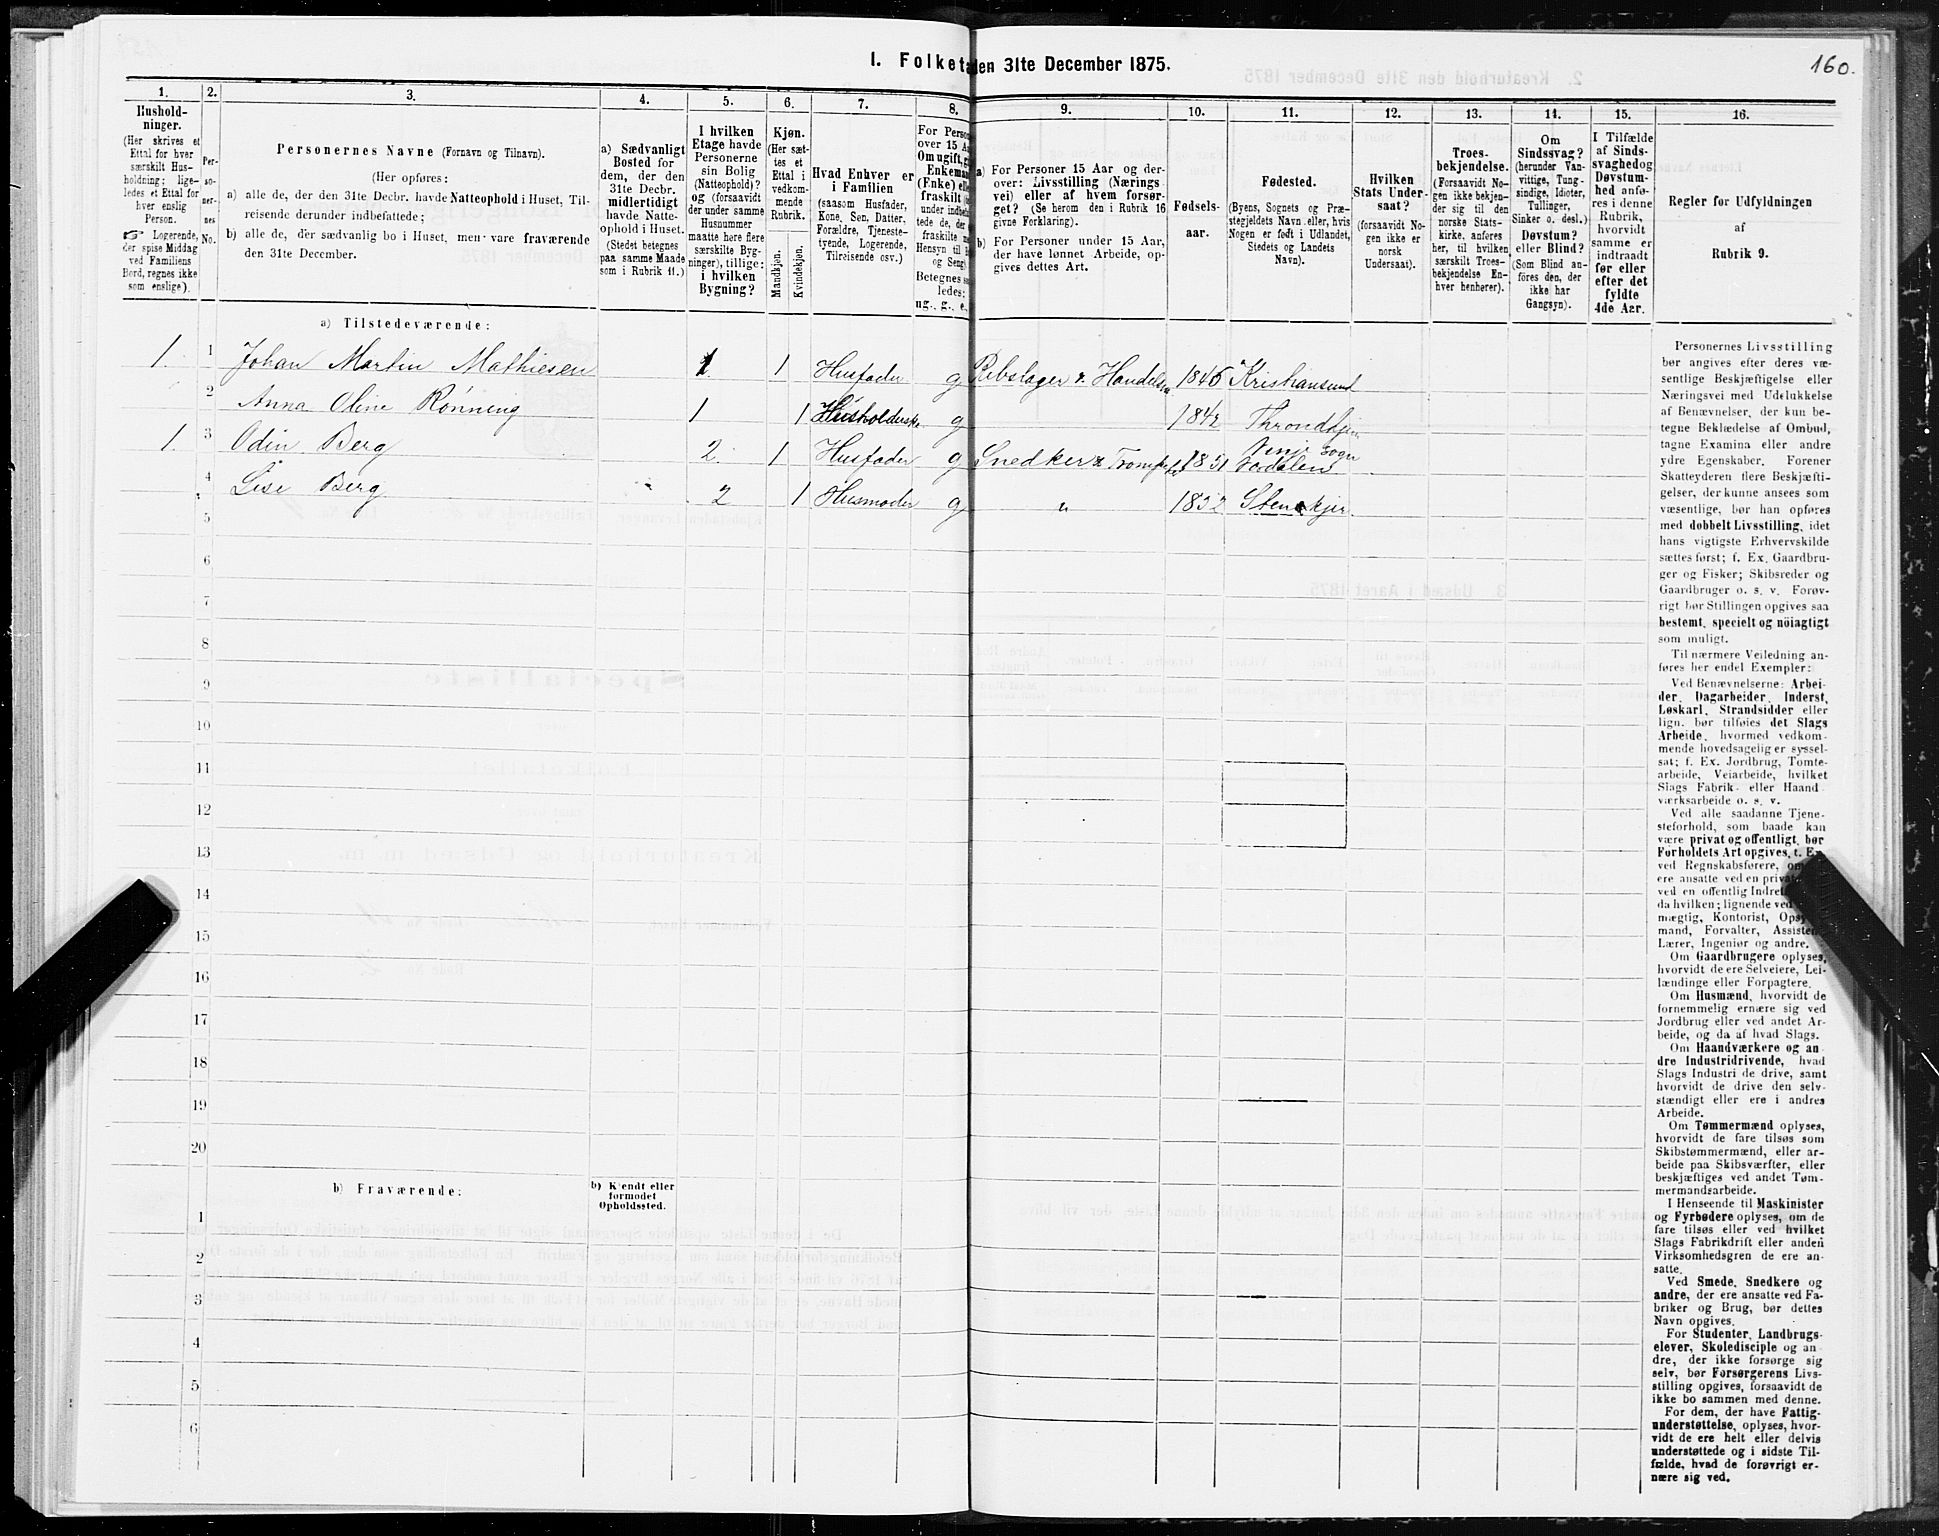 160.
I. Folketa den 31te December 1875.
1. 2. 3. 4. 5. 6. 7. 8. 9. 10. 11. 12. 13. 14. 15. 16.
Hushold-
ninger.
(Her skrives et
Ettal for hver
særskilt Hus-
holdning; lige-
ledes et Ettal for
hver enslig
Person.
☞ Logerende,
der spise Middag
ved Familiens
Bord, regnes ikke
som enslige).
Per-
so-
ner-
nes
No.
Personernes Navne (Fornavn og Tilnavn).
(Her opføres:
a) alle de, der den 31te Decbr. havde Natteophold i Huset, Til-
reisende derunder indbefattede;
b) alle de, der sædvanlig bo i Huset, men vare fraværende
den 31te December.
a) Sædvanligt
Bosted for
dem, der den
31te Decbr.
midlertidigt
havde Natte-
ophold i Huset.
(Stedet betegnes
paa samme Maade
som i Rubrik 11.)
I hvilken
Etage havde
Personerne
sin Bolig
(Natteophold)?
og (forsaavidt
der under samme
Husnummer
maatte høre flere
særskilte Byg-
ninger), tillige:
i hvilken
Bygning?
Kjøn.
(Her sæt-
tes et
Ettal i
vedkom-
mende
Rubrik.
Mandkjøn.
Kvindekjøn.
Hvad Enhver er
i Familien
(saasom Husfader,
Kone, Søn, Datter,
Forældre, Tjeneste-
tyende, Logerende,
Tilreisende osv.)
For Person
over 15 Aa
Omugift, gi
Enkemand
(Enke) elle
fraskilt
under fraskilte
Hensyn til B
og Seng)
Betegnes saa
ledes:
ug., g., e.,
a) For Personer 15 Aar og der-
over: Livsstilling (Nærings
vei) eller af hvem forsør-
get? (Se herom den i Rubrik 16
givne Forklaring).
b) For Personer under 15 Aar,
der have lønnet Arbeide, op-
gives dettes Art.
Fødsels-
aar.
Fødested.
(Byens, Sognets og Præ-
stegjeldets Navn eller, hvis
Nogen er født i Udlandet,
Stedets og Landets
Navn).
Hvilken
Stats Under-
saat?
(forsaavidt No-
gen ikke er
norsk
Undersaat).
Troes-
bekjendelse.
(Forsaavidt No-
gen ikke bekjen-
der sig til den
norske Stats-
kirke, anføres
her, til hvilken
særskilt Troes-
bekjendelse En-
hver henhører).
Om
Sindssvag?
(herunder Van-
vittige, Tung-
sindige, Idioter,
Tullinger,
Sinker o. desl.)
Døvstum?
eller Blind?
(Som Blind an-
føres den, der
ikke har
Gangsyn).
I Tilfælde
af Sinds-
svaghed og
Døvstum-
hed anfø-
res i denne
Rubrik,
hvorvidt
samme er
indtraadt
før eller
efter det
fyldte
4de Aar.
Regler for Udfyldningen
af
Rubrik 9.
a) Tilstedeværende:
1. 1 Johan Martin Mathiesen 1 1 Husfader g Rebslager &. Handelsm 1845 Kristiansund
2 Anna Oline Rønning 1 1 Husholderske g 1842 Throndhjem
1. 3 Odin Berg 2 1 Husfader g Snedker & 1831
4 Lise Berg 2 1 Husmoder g " 1832 Stenkjer
5
6
7
8
9
10
11
12
13
14
15
16
17
18
19
20
b) Fraværende:
b) Kjendt eller
formodet
Opholdssted.
1
2
3
4
5
6
Personernes Livsstilling
bør angives efter deres væ-
sentlige Beskjæftigelse eller
Næringsvei med Udelukkelse
af Benævnelser, der kun be-
tegne Beklædelse af Ombud,
tagne Examina eller andre
ydre Egenskaber. Forener
Skatteyderen flere Beskjæfti-
gelser, der kunne ansees som
væsentlige, bør han opføres
med dobbelt Livsstilling, idet
hans vigtigste Erhvervskilde
sættes først; f. Ex. Gaardbru-
ger og Fisker; Skibsreder og
Gaardbruger o. s. v. Forøv-
rigt bør Stillingen opgives saa
bestemt, specielt og nöiagtigt
som muligt.
Til nærmere Veiledning an-
føres her endel Exempler:
Ved Benævnelserne: Arbei-
der, Dagarbeider, Inderst,
Løskarl, Strandsidder eller
lign. bør tilføies det Slags
Arbeide, hvormed vedkom-
mende hovedsagelig er syssel-
sat; f. Ex. Jordbrug, Tomte-
arbeide, Veiarbeide, hvilket
Slags Fabrik- eller Haand
værksarbeide o. s. v.
Ved alle saadanne Tjene-
steforhold, som baade kan
være privat og offentligt, bør
Forholdets Art opgives, f. Ex
ved Regnskabsførere, om
ere ansatte ved en privat
ved en offentlig Indret
da hvilken; lignende ved
mægtig, Kontorist, Opsy
mand, Forvalter, Assisten
Lærer, Ingeniør og andre.
Om Gaardbrugere oplyses,
hvorvidt de ere Selveiere, Lei-
lændinge eller Forpagtere.
Om Husmænd, hvorvidt de
fornemmelig ernære sig ved
Jordbrug eller ved andet Ar-
beide, og da af hvad Slags.
Om Haandværkere og an
dre Industridrivende, hvad
Slags Industri de drive, samt
hvorvidt de drive den selv-
stændigt eller ere i andres
Arbeide.
Om Tømmermænd oplyses,
hvorvidt de fare tilsøs som
Skibstømmermænd, eller ar-
beide paa Skibsværfter, eller
beskjæftiges ved andet Tøm-
mermandsarbeide.
I Henseende til Maskinister
og Fyrbødere oplyses, om de
fare tilsøs eller ved hvilket
Slags Fabrikdrift eller anden
Virksomhedsgren de ere an-
satte.
Ved Smede, Snedkere og
andre, der ere ansatte ved Fa-
briker og Brug, bør dettes
Navn opgives.
For Studenter, Landbrugs-
elever, Skoledisciple og an-
dre, der ikke forsørge sig
selv, bør Forsørgerens Livs-
stilling opgives, forsaavidt de
ikke bo sammen med denne.
For dem, der have Fattig-
understøttelse, oplyses, hvor-
vidt de ere helt eller delvis
understøttede og i sidste Til-
fælde, hvad de forøvrigt er-
nære sig ved.